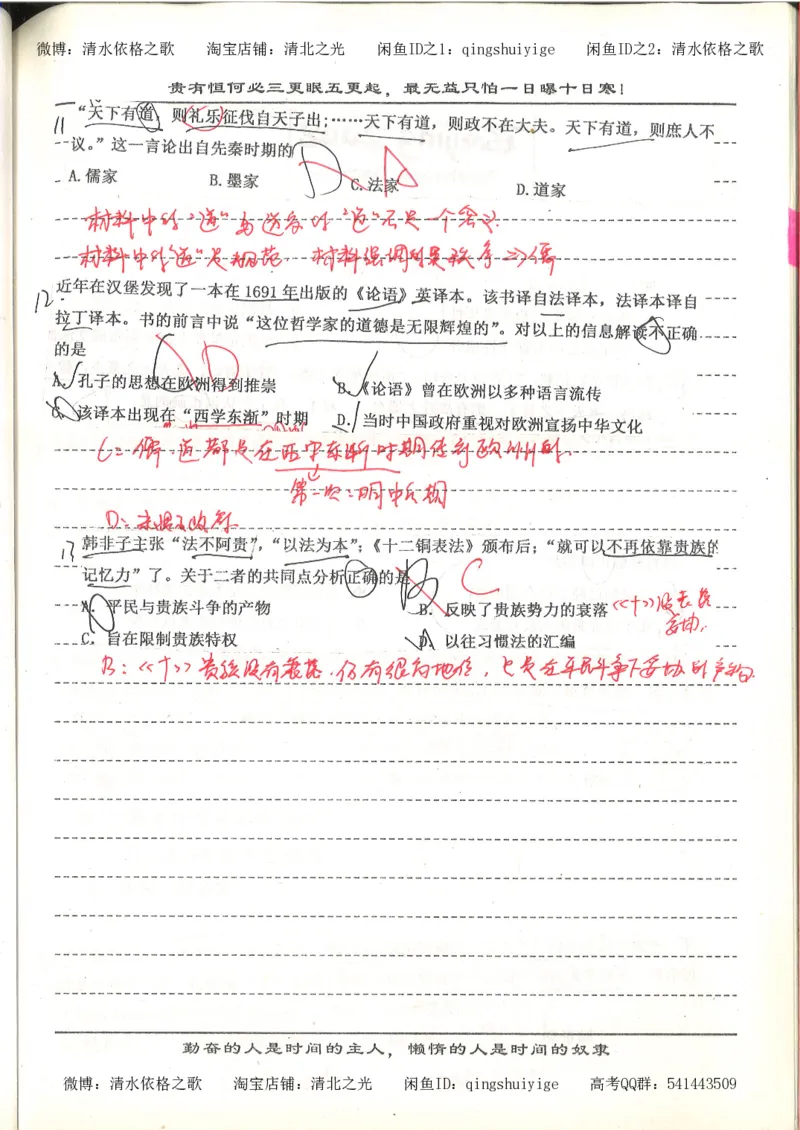 微博：清水依格之歌 淘宝店铺：清北之光 闲鱼ID之1：qingshuiyige 闲鱼ID之2：清水依格之歌
贵有恒何必三更眠五更起，最无益只怕一日曝十日寒！
11 “天下有道，则礼乐征伐自天子出；……天下有道，则政不在大夫。天下有道，则庶人不
议。”这一言论出自先秦时期的 D A
A.儒家 B.墨家 C.法家 D.道家
材料中的“道”与道家的“道”不是一个含义.
材料中的“道”是规范，材料强调的是秩序⇒儒
12. 近年在汉堡发现了一本在1691年出版的《论语》英译本。该书译自法译本，法译本译自
拉丁译本。书的前言中说“这位哲学家的道德是无限辉煌的”。对以上的信息解读不正确
的是 D
A. 孔子的思想在欧洲得到推崇 B.《论语》曾在欧洲以多种语言流传
C. 该译本出现在“西学东渐”时期 D. 当时中国政府重视对欧洲宣扬中华文化
C：儒、道都是在西学东渐时期传到欧洲的.
第一次：明中后期
D：未提及政府.
13 韩非子主张“法不阿贵”，“以法为本”；《十二铜表法》颁布后；“就可以不再依靠贵族的
记忆力”了。关于二者的共同点分析正确的是 B C
A. 平民与贵族斗争的产物 B. 反映了贵族势力的衰落 《十》没衰落
妥协.
C. 旨在限制贵族特权 D. 以往习惯法的汇编
B：《十》贵族没有衰落，仍有很高地位，也是在平民斗争下妥协的产物.
勤奋的人是时间的主人，懒惰的人是时间的奴隶
微博：清水依格之歌 淘宝店铺：清北之光 闲鱼ID：qingshuiyige 高考QQ群：541443509